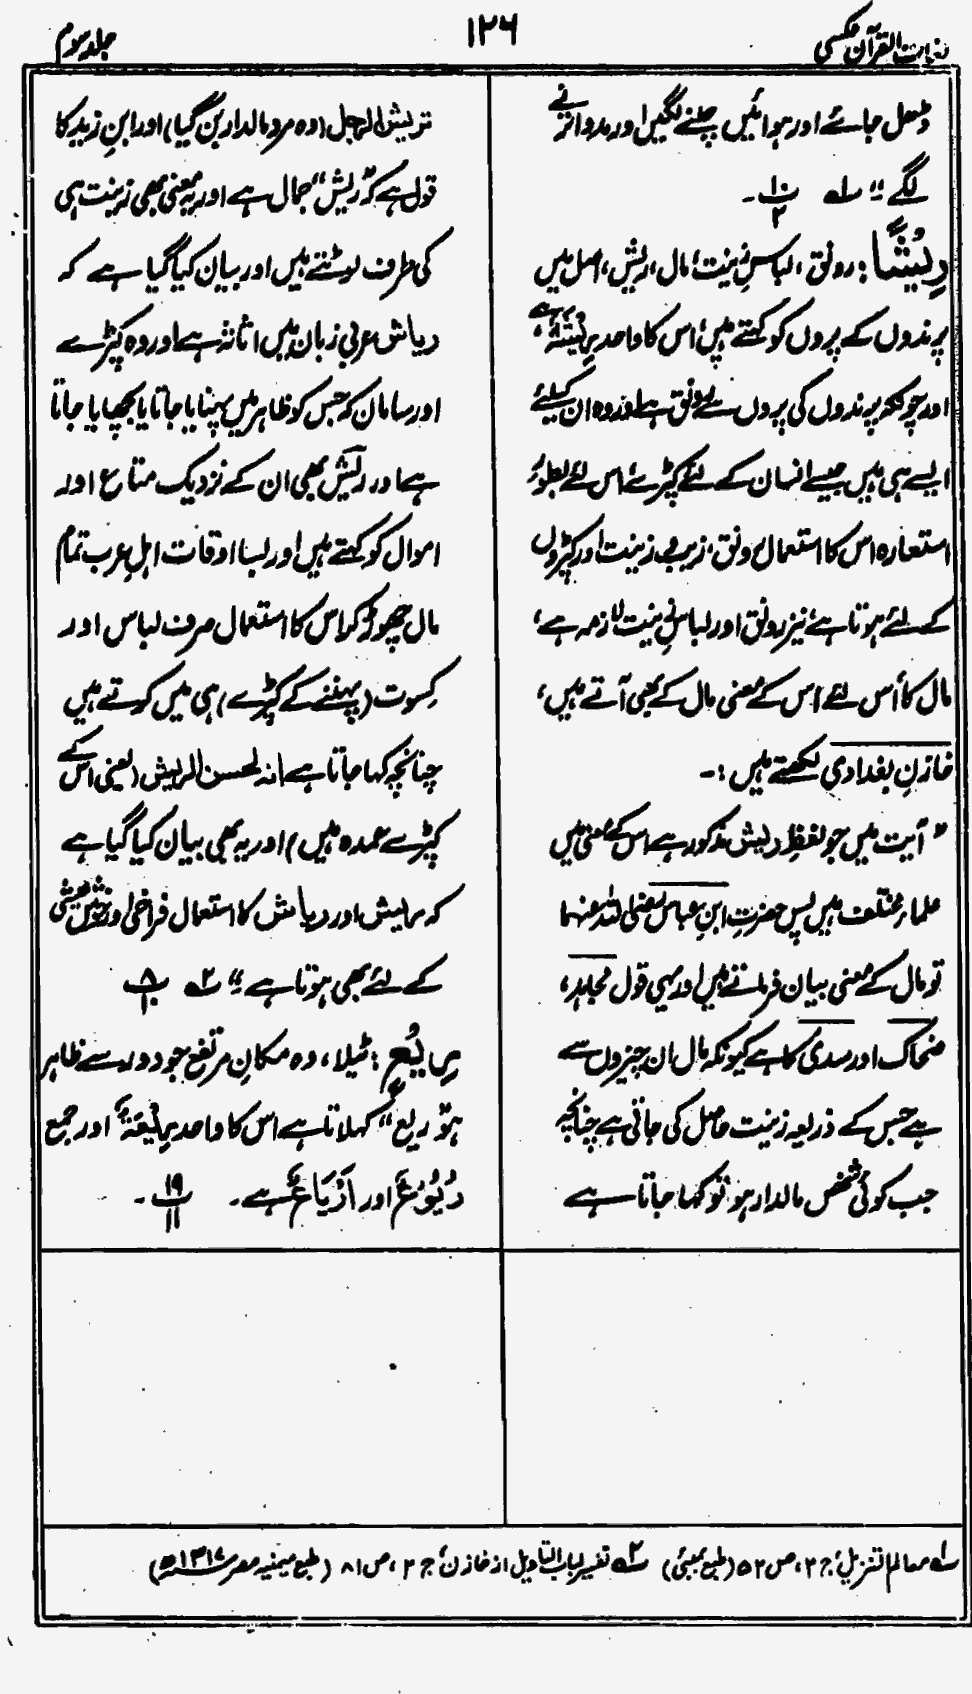 لغات القرآن عکسی
۱۲۶
جلد سوم
ڈھل جائے اور ہوائیں چلنے لگیں اور مدد اترنے
لگے " لہ پ۱۰/۲ ۔
رِیْشًا: رونق، لباسِ زینت، مال، ریش، اصل میں
پرندوں کے پروں کو کہتے ہیں، اس کا واحد رِیْشَۃٌ ہے،
اور چونکہ پرندوں کی پروں سے رونق ہے اور وہ ان کیلئے
ایسے ہی ہیں جیسے انسان کے لئے کپڑے اس لئے بطور
استعارہ اس کا استعمال رونق، زیب و زینت اور کپڑوں
کے لئے ہوتا ہے، نیز رونق اور لباسِ زینت لازمہ ہے،
مال کا اس لئے اس کے معنی مال کے بھی آتے ہیں،
خازنِ بغدادی لکھتے ہیں :-
" آیت میں جو لفظِ ریش مذکور ہے اس کے معنی میں
علماء مختلف ہیں پس حضرتِ ابنِ عباس رضی اللہ عنہما
تو مال کے معنی بیان فرماتے ہیں اور یہی قول مجاہد،
ضحاک اور سدی کا ہے کیونکہ مال ان چیزوں سے
ہے جس کے ذریعہ زینت حاصل کی جاتی ہے چنانچہ
جب کوئی شخص مالدار ہو تو کہا جاتا ہے
تریش الرجل (وہ مرد مالدار بن گیا) اور ابنِ زید کا
قول ہے کہ "ریش" جمال ہے اور یہ معنی بھی زینت ہی
کی طرف لوٹتے ہیں اور بیان کیا گیا ہے کہ
ریاش عربی زبان میں اثاثہ ہے اور وہ کپڑے
اور سامان کہ جس کو ظاہر میں پہنایا جاتا یا بچھایا جاتا
ہے اور ریش بھی ان کے نزدیک متاع اور
اموال کو کہتے ہیں اور بسا اوقات اہلِ عرب تمام
مال چھوڑ کر اس کا استعمال صرف لباس اور
کسوت (پہننے کے کپڑے) ہی میں کرتے ہیں
چنانچہ کہا جاتا ہے انہ لحسن الریش (یعنی اس کے
کپڑے عمدہ ہیں) اور یہ بھی بیان کیا گیا ہے
کہ ریش اور ریاش کا استعمال فراخی اور خوش عیشی
کے لئے بھی ہوتا ہے " ۲ہ پ۸/۱۰
رِیْعٍ : ٹیلا، وہ مکانِ مرتفع جو دور سے ظاہر
ہو "ریع" کہلاتا ہے اس کا واحد رِیْعَۃٌ اور جمع
رُیُوْعٌ اور اَرْیَاعٌ ہے ۔ پ۱۹/۱۱ ۔
۱ہ معالم التنزیل، ج ۲، ص ۵۲ (طبع بمبئی) ۲ہ تفسیر لباب التاویل از خازن، ج ۲، ص ۸۱ (طبع میمنیہ مصر ۱۳۱۷ھ)